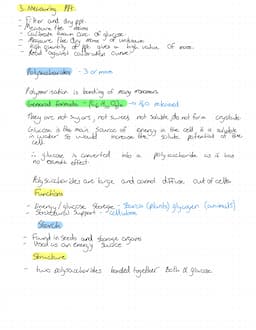 3. Measuring PPt.
- Filter and dry ppt.
- Measure the mass
- Calibrate known conc of glucose
- Measure the dry mass of unknown
- High quantity of ppt gives a high value of mass.
- Read against calibration curve
Polysaccharides - 3 or more
Polymerisation is bonding of many monomers
General formula - (C6 H10 O5)n → H2O removed
They are not sugars, not sweet, not soluble, do not form crystals
Glucose is the main source of energy in the cell, it is soluble
in water so would increase the solute potential of the
cell
∴ glucose is converted into a polysaccharide as it has
no osmotic effect.
Polysaccharides are large and cannot diffuse out of cells
Function
- Energy/glucose storage - Starch (plants) glycogen (animals)
- Structural support - cellulose
Starch
- Found in seeds and storage organs
- Used as an energy source
Structure
- two polysaccharides bonded together Both α glucose